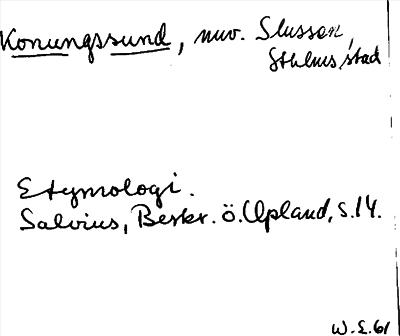 Konungssund, nuv. Slussen,
Sthlms stad
Etymologi.
Salvius, Beskr. ö. Upland, s. 14.
W.E.61